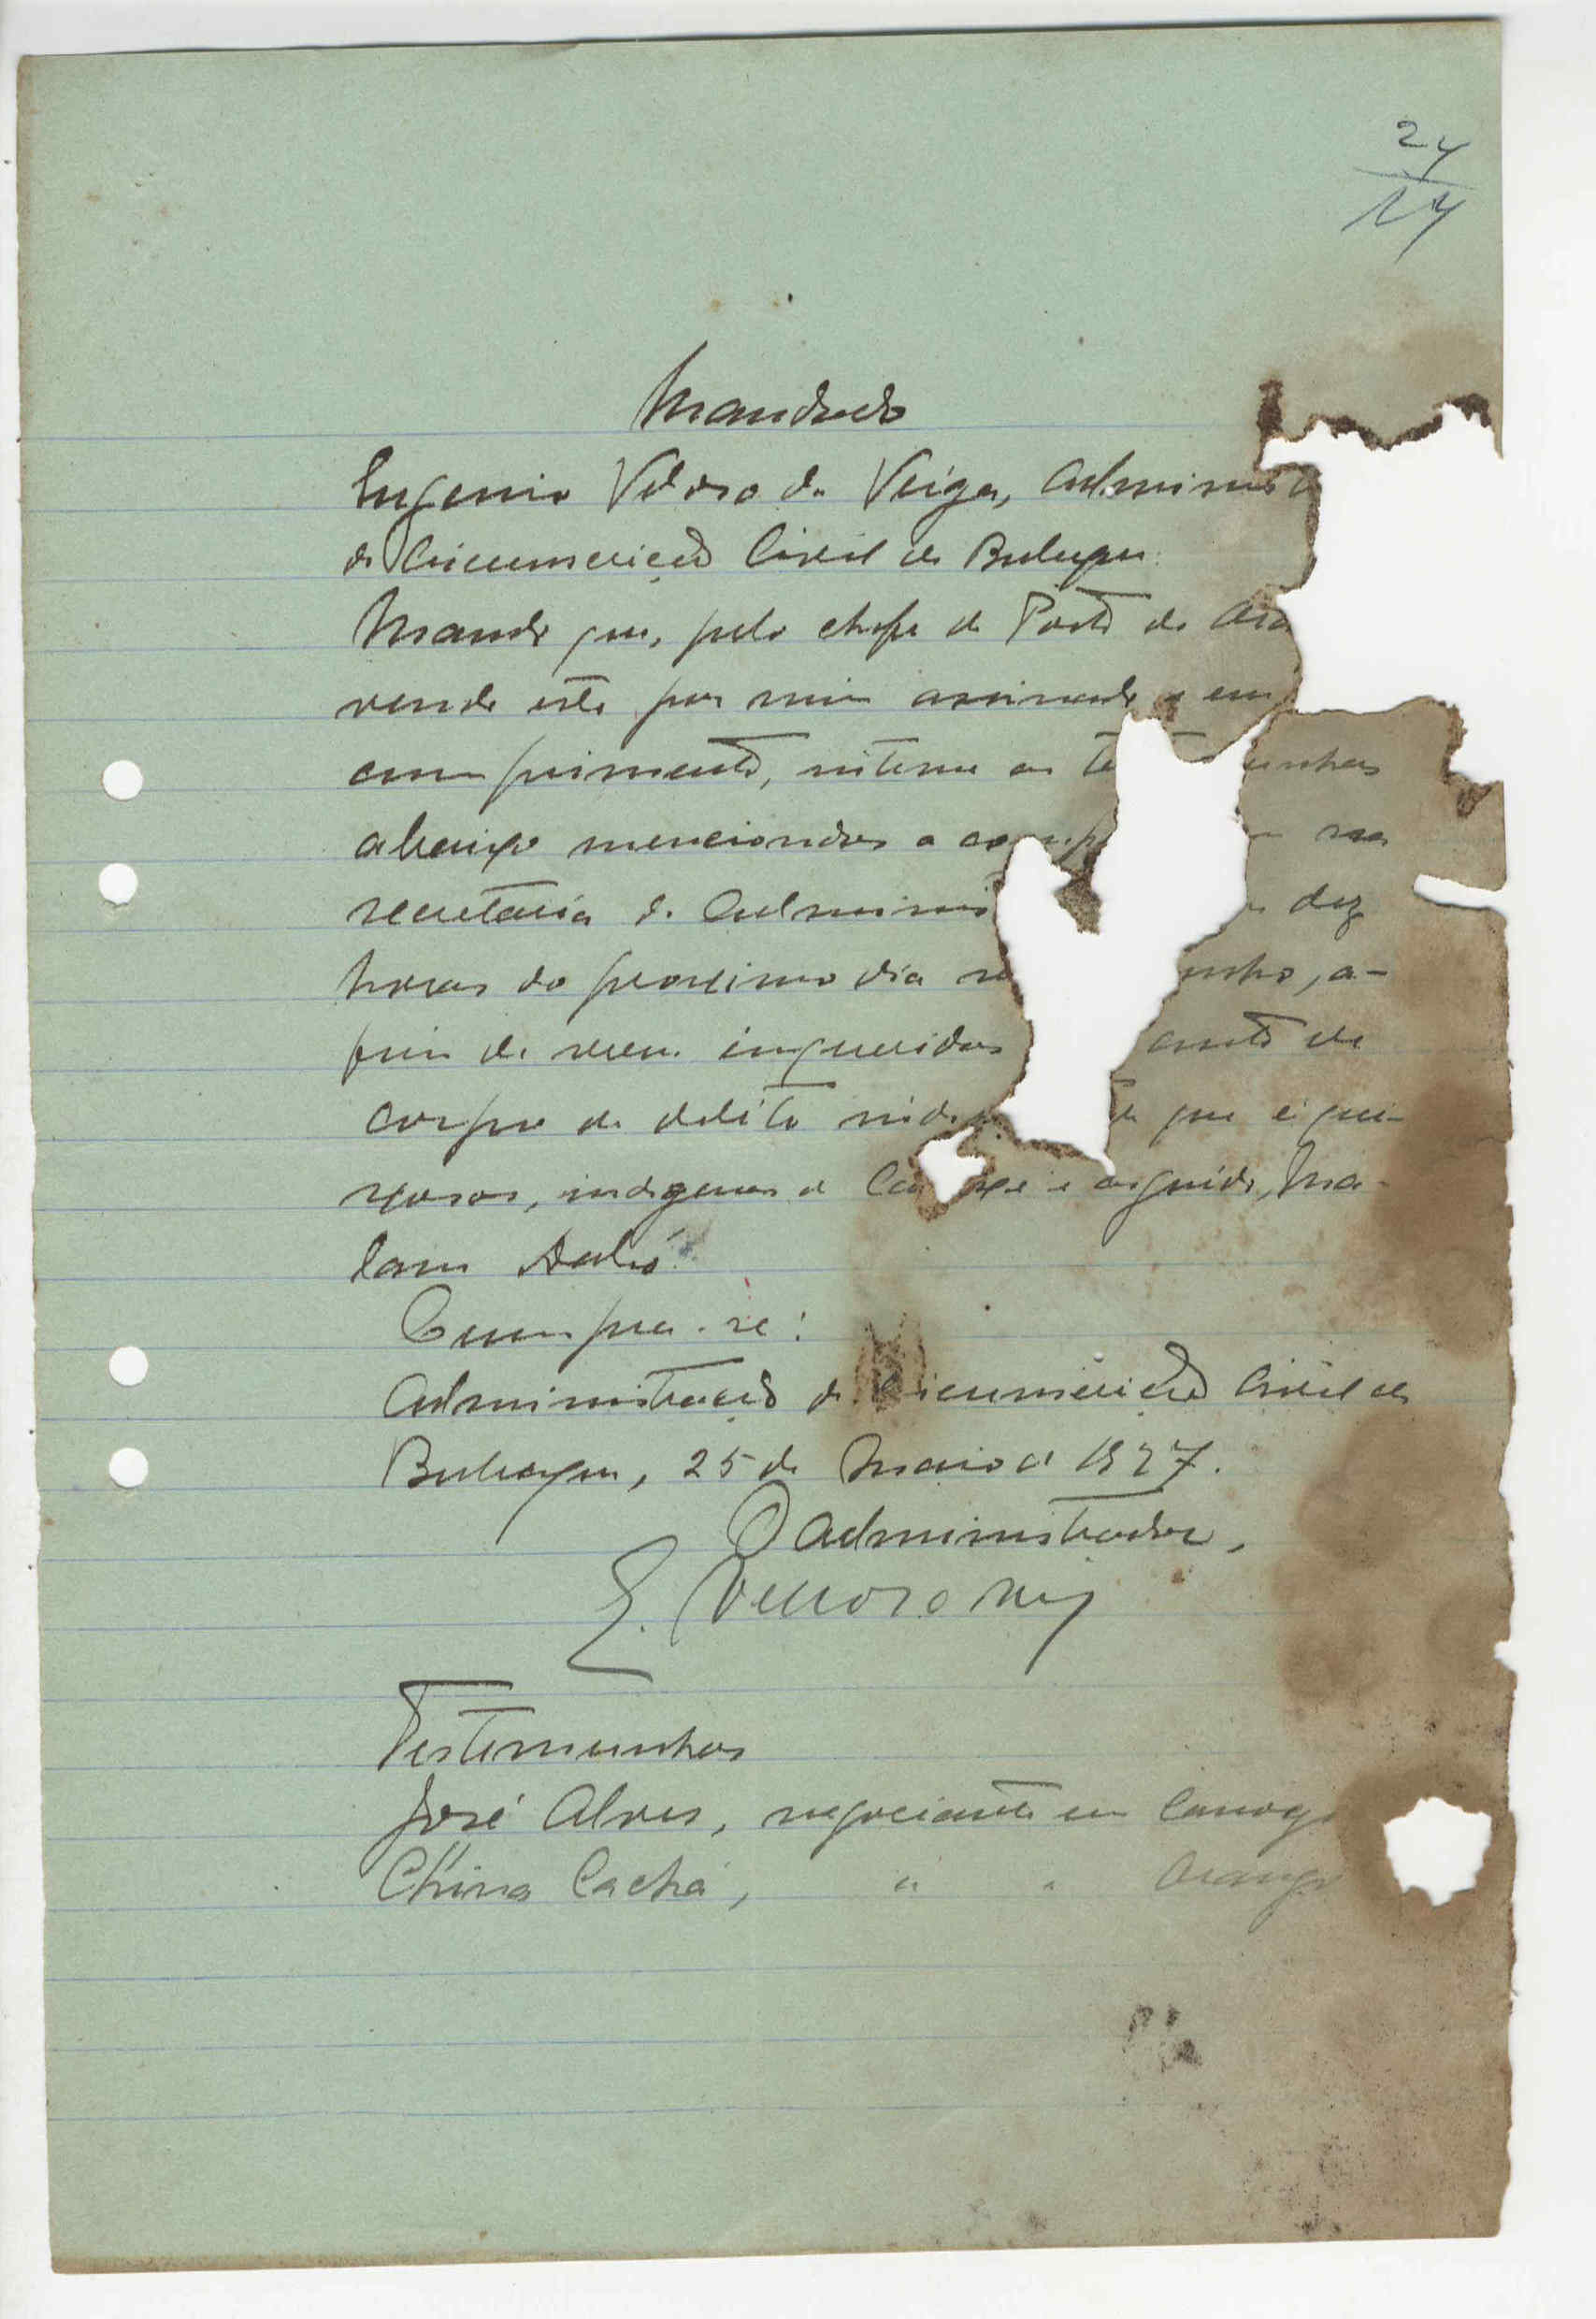 24
14
Mandado
Eugenio Veloso da Veiga, Administ
da Circunscrição Civil de Bubaque.
Mando que, pelo chefe do Posto de Ora
vendo este por mim assinado e em
cumprimento, intime as te unhas
abaixo mencionadas a comp na
secretaria da Administ dez
horas do proximo dia se unho, a-
fim de serem inqueridas auto de
corpo de delito indi que é quei-
xosos, indigenas de Ca e arguido, Ma-
lam
Cumpra-se:
Administração da Circunscrição Civil de
Bubaque, 25 de Maio de 1927.
O Administrador,
E. Velloso Veiga
Testemunhas
José Alves, negociante em Canoga
China Cachá, " " Orango